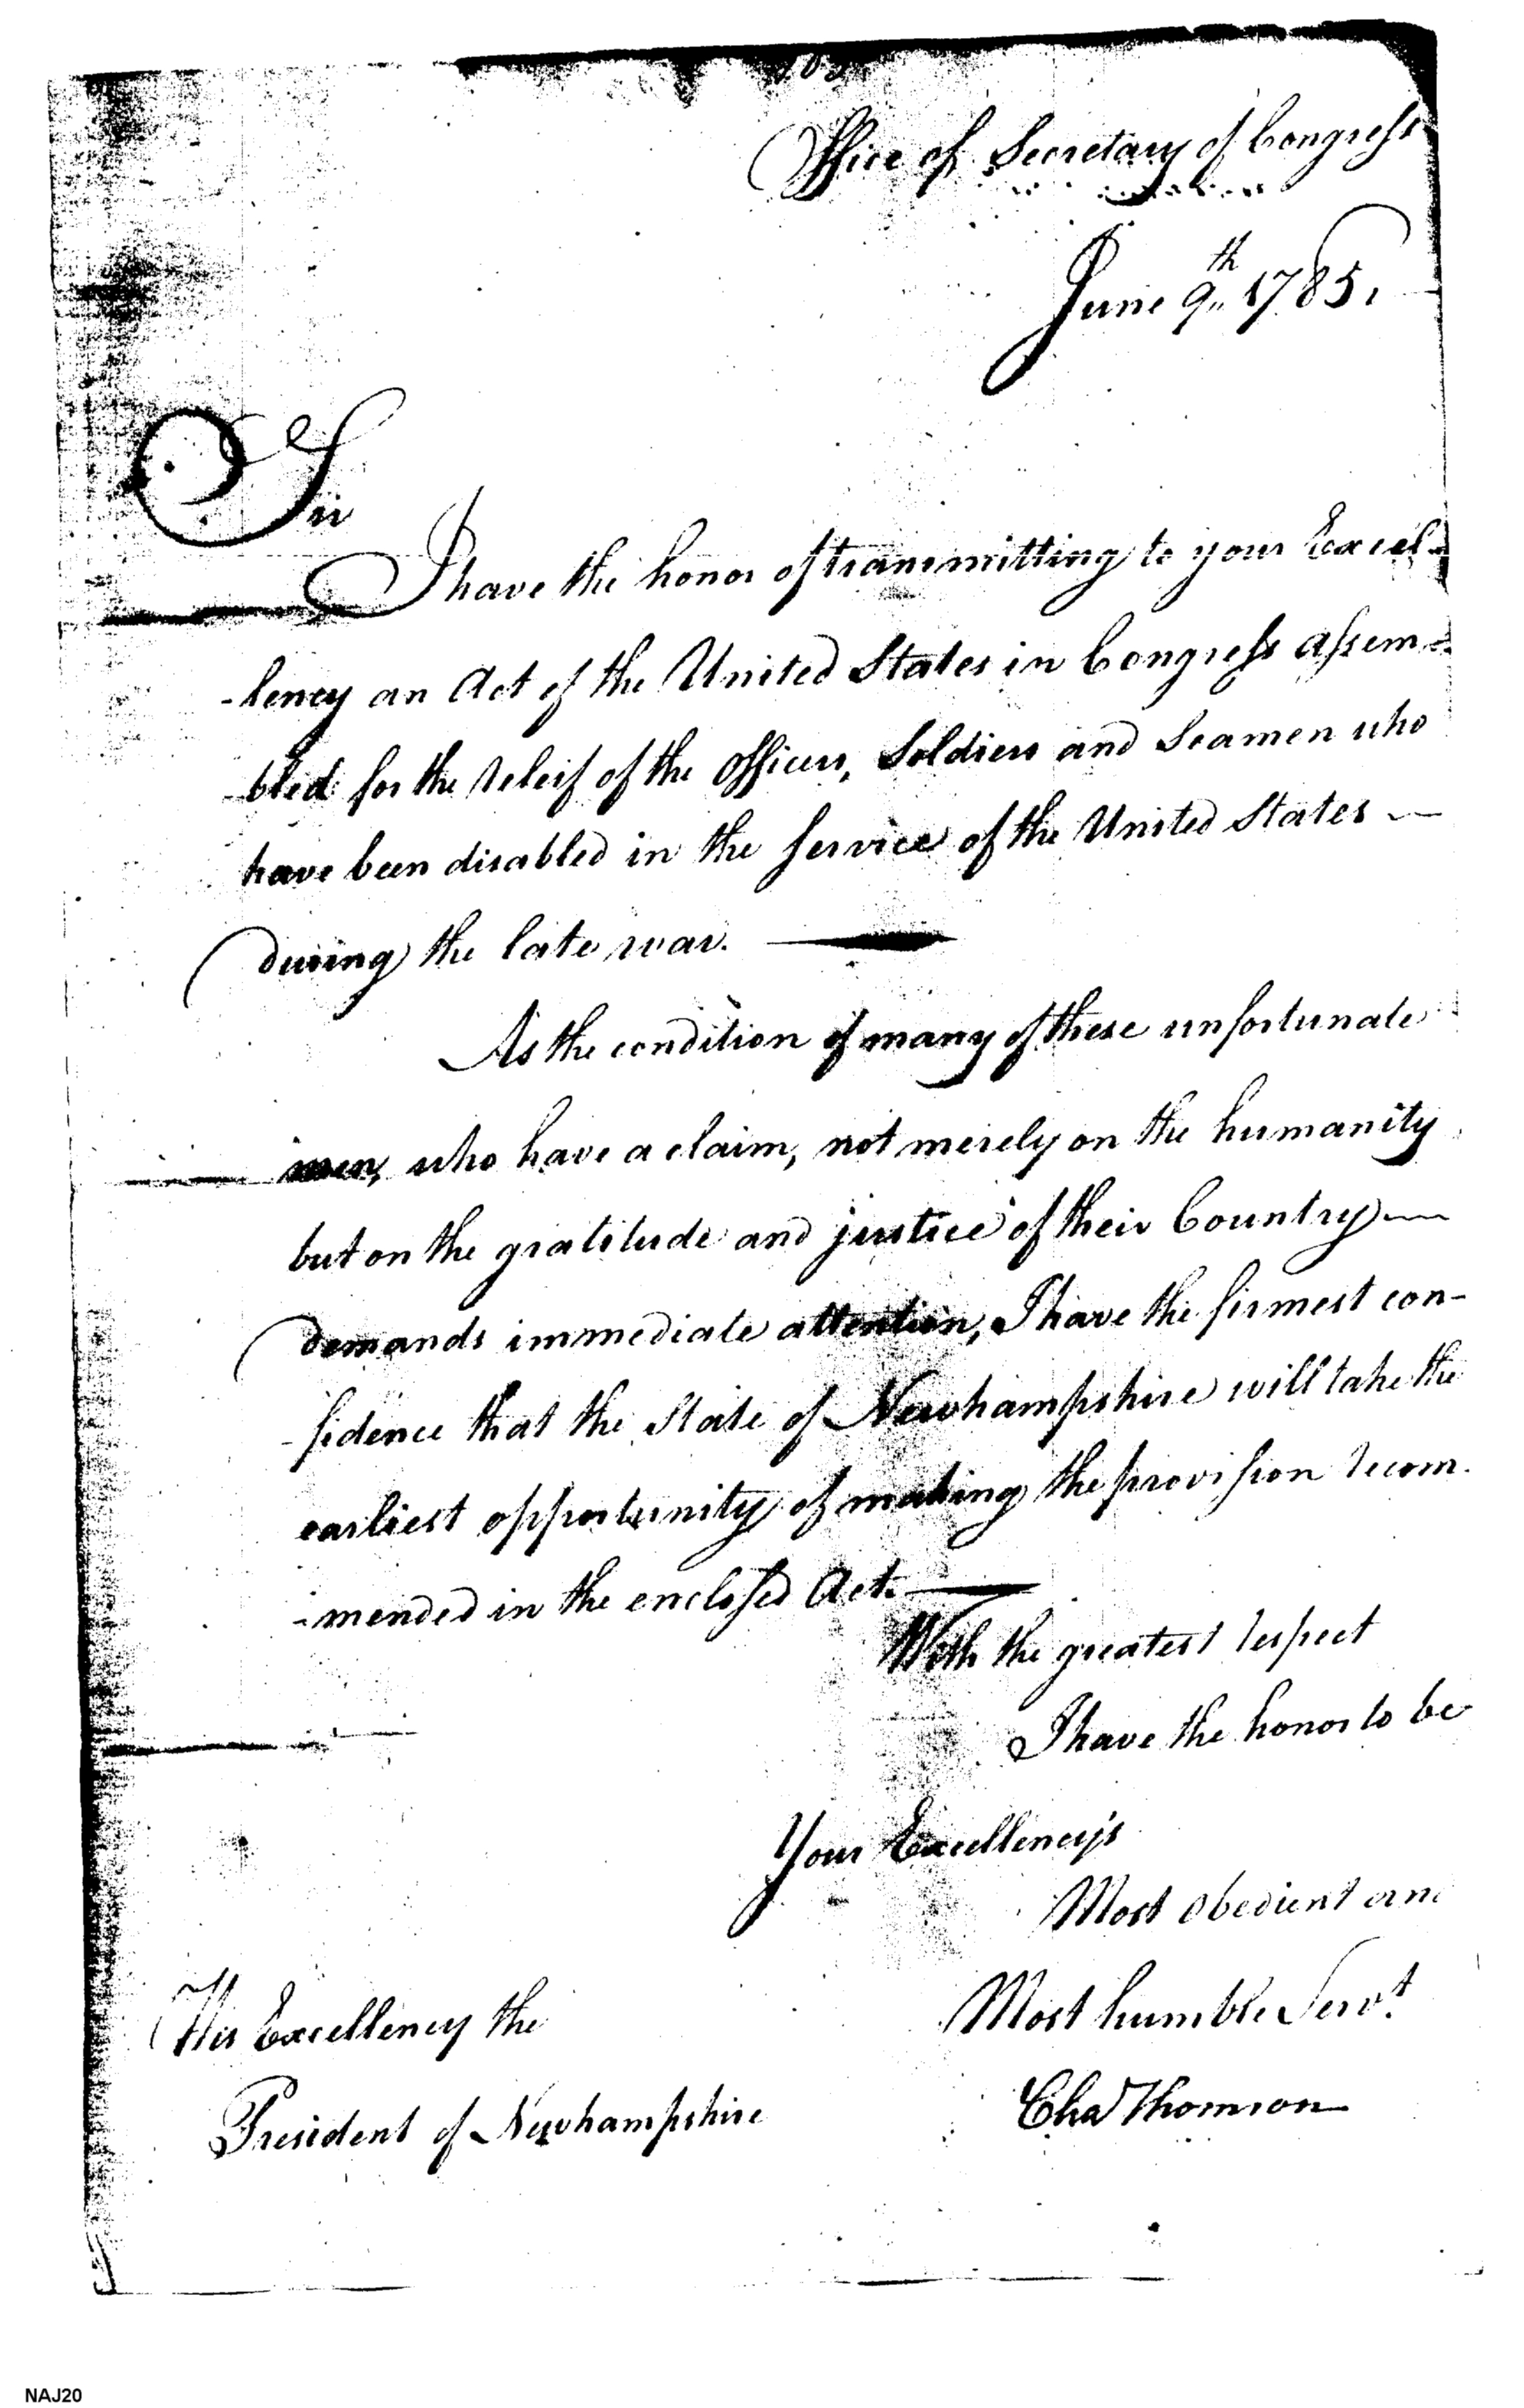 Office of Secretary of Congress
June 9th 1785.
Sir
I have the honor of transmitting to your Excel-
-lency an Act of the United States in Congress assem-
-bled for the releif of the officers, Soldiers and Seamen who
have been disabled in the service of the United States —
during the late war. —
As the condition of many of these unfortunate
men, who have a claim, not merely on the humanity
but on the gratitude and justice of their Country —
demands immediate attention, I have the firmest con-
-fidence that the State of Newhampshire will take the
earliest opportunity of making the provision recom-
-mended in the enclosed Act. —
With the greatest respect
I have the honor to be
Your Excellency's
Most obedient and
Most humble Servt.
Cha Thomson
His Excellency the
President of Newhampshire
NAJ20